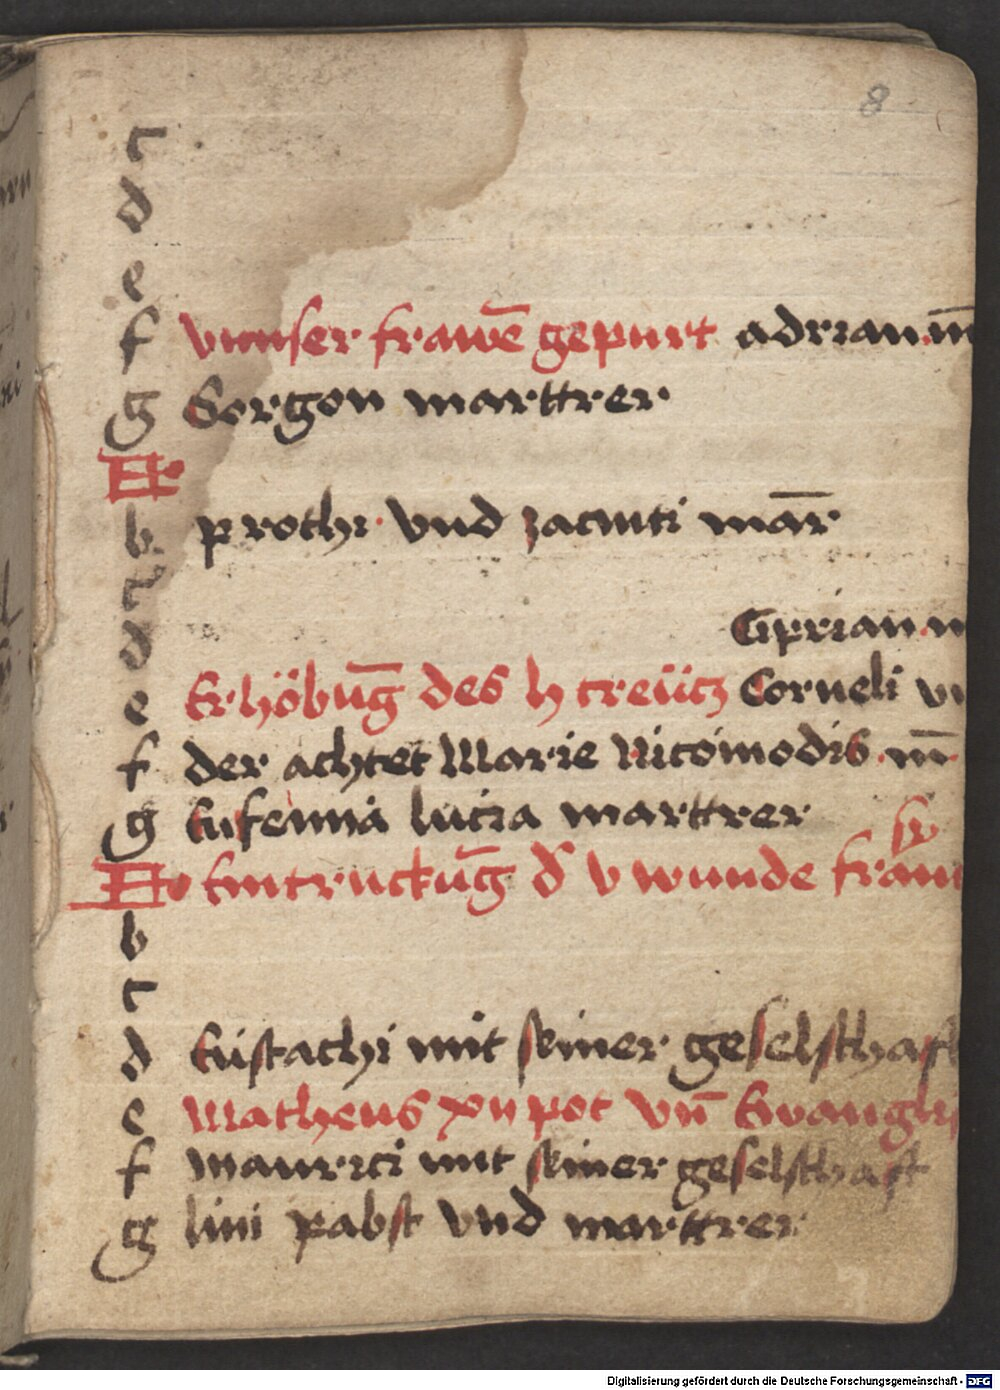 8
c
d
e
f vnnser frawē gepurt adrian m̄
g Gorgon marttrer
A
b prothi vnd zacinti mār
c
d Ciprian
e Erhöbūg des h creütz Corneli
f der achtet Marie Nicomodis m̄
g Eufemia lucia marttrer
A Eintruckūg d' v wunde fr
b
c
d Eustachi mit seiner geselschaft
e Matheus xii pot vn̄ Evangeli
f maurici mit seiner geselschaft
g lini pabst vnd marttrer
Digitalisierung gefördert durch die Deutsche Forschungsgemeinschaft - DFG